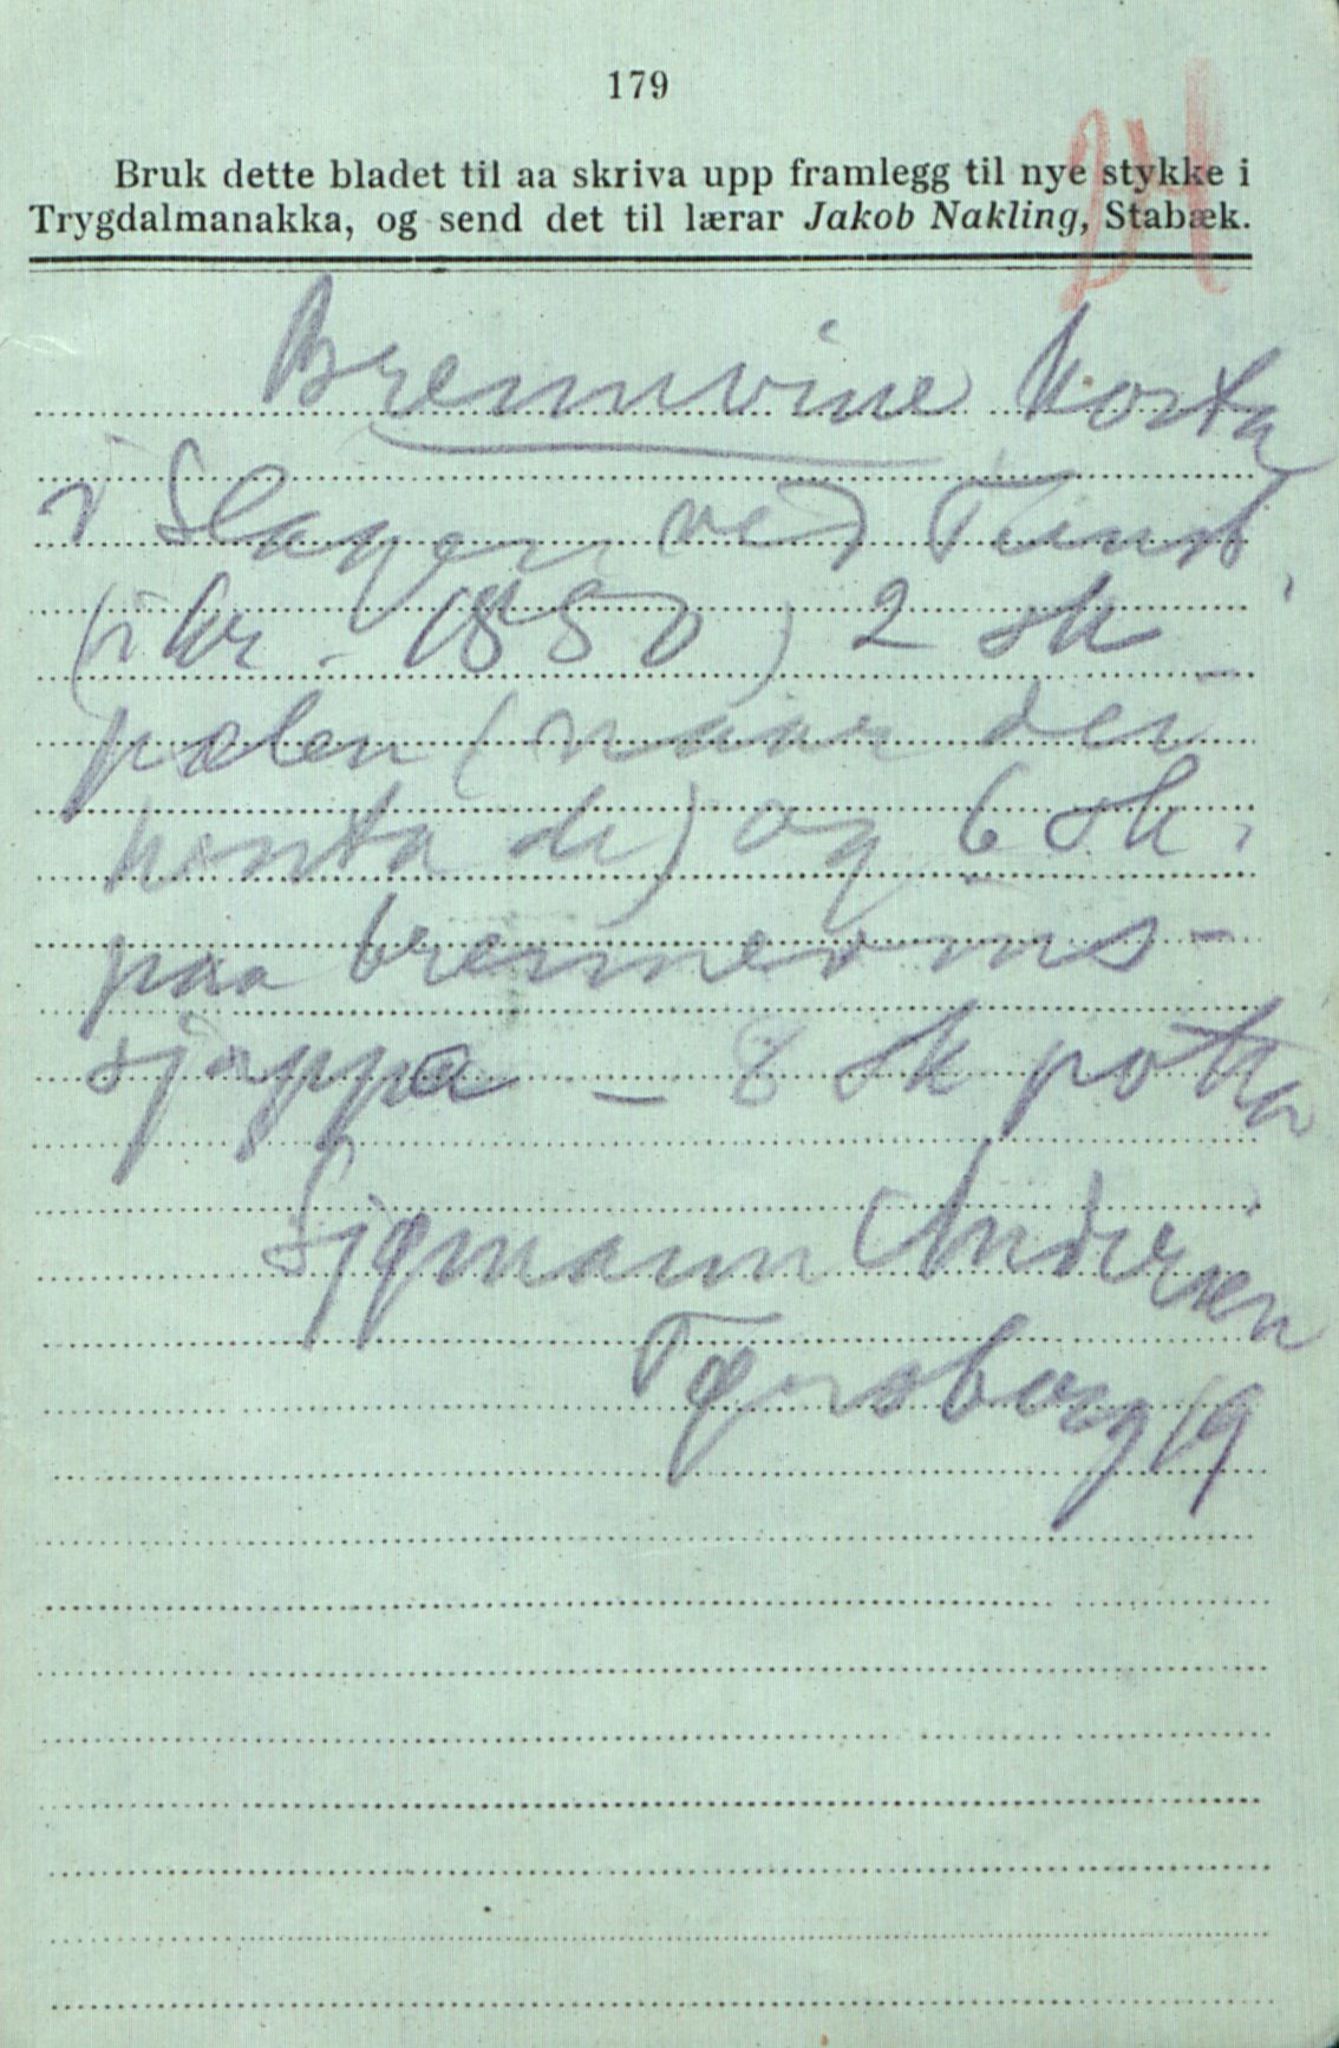 179
24
Bruk dette bladet til aa skriva upp framlegg til nye stykke i
Trygdalmanakka, og send det til lærar Jakob Nakling, Stabæk.
Brennvine kosta
i Slagen ved Tunsb.
(ikr. 1850) 2 sk
pælen (naar dei
henta de) og 6 sk.
paa brennevins-
sjappa - 8 sk potta
Sigmann Andersen
Tønsberg 19